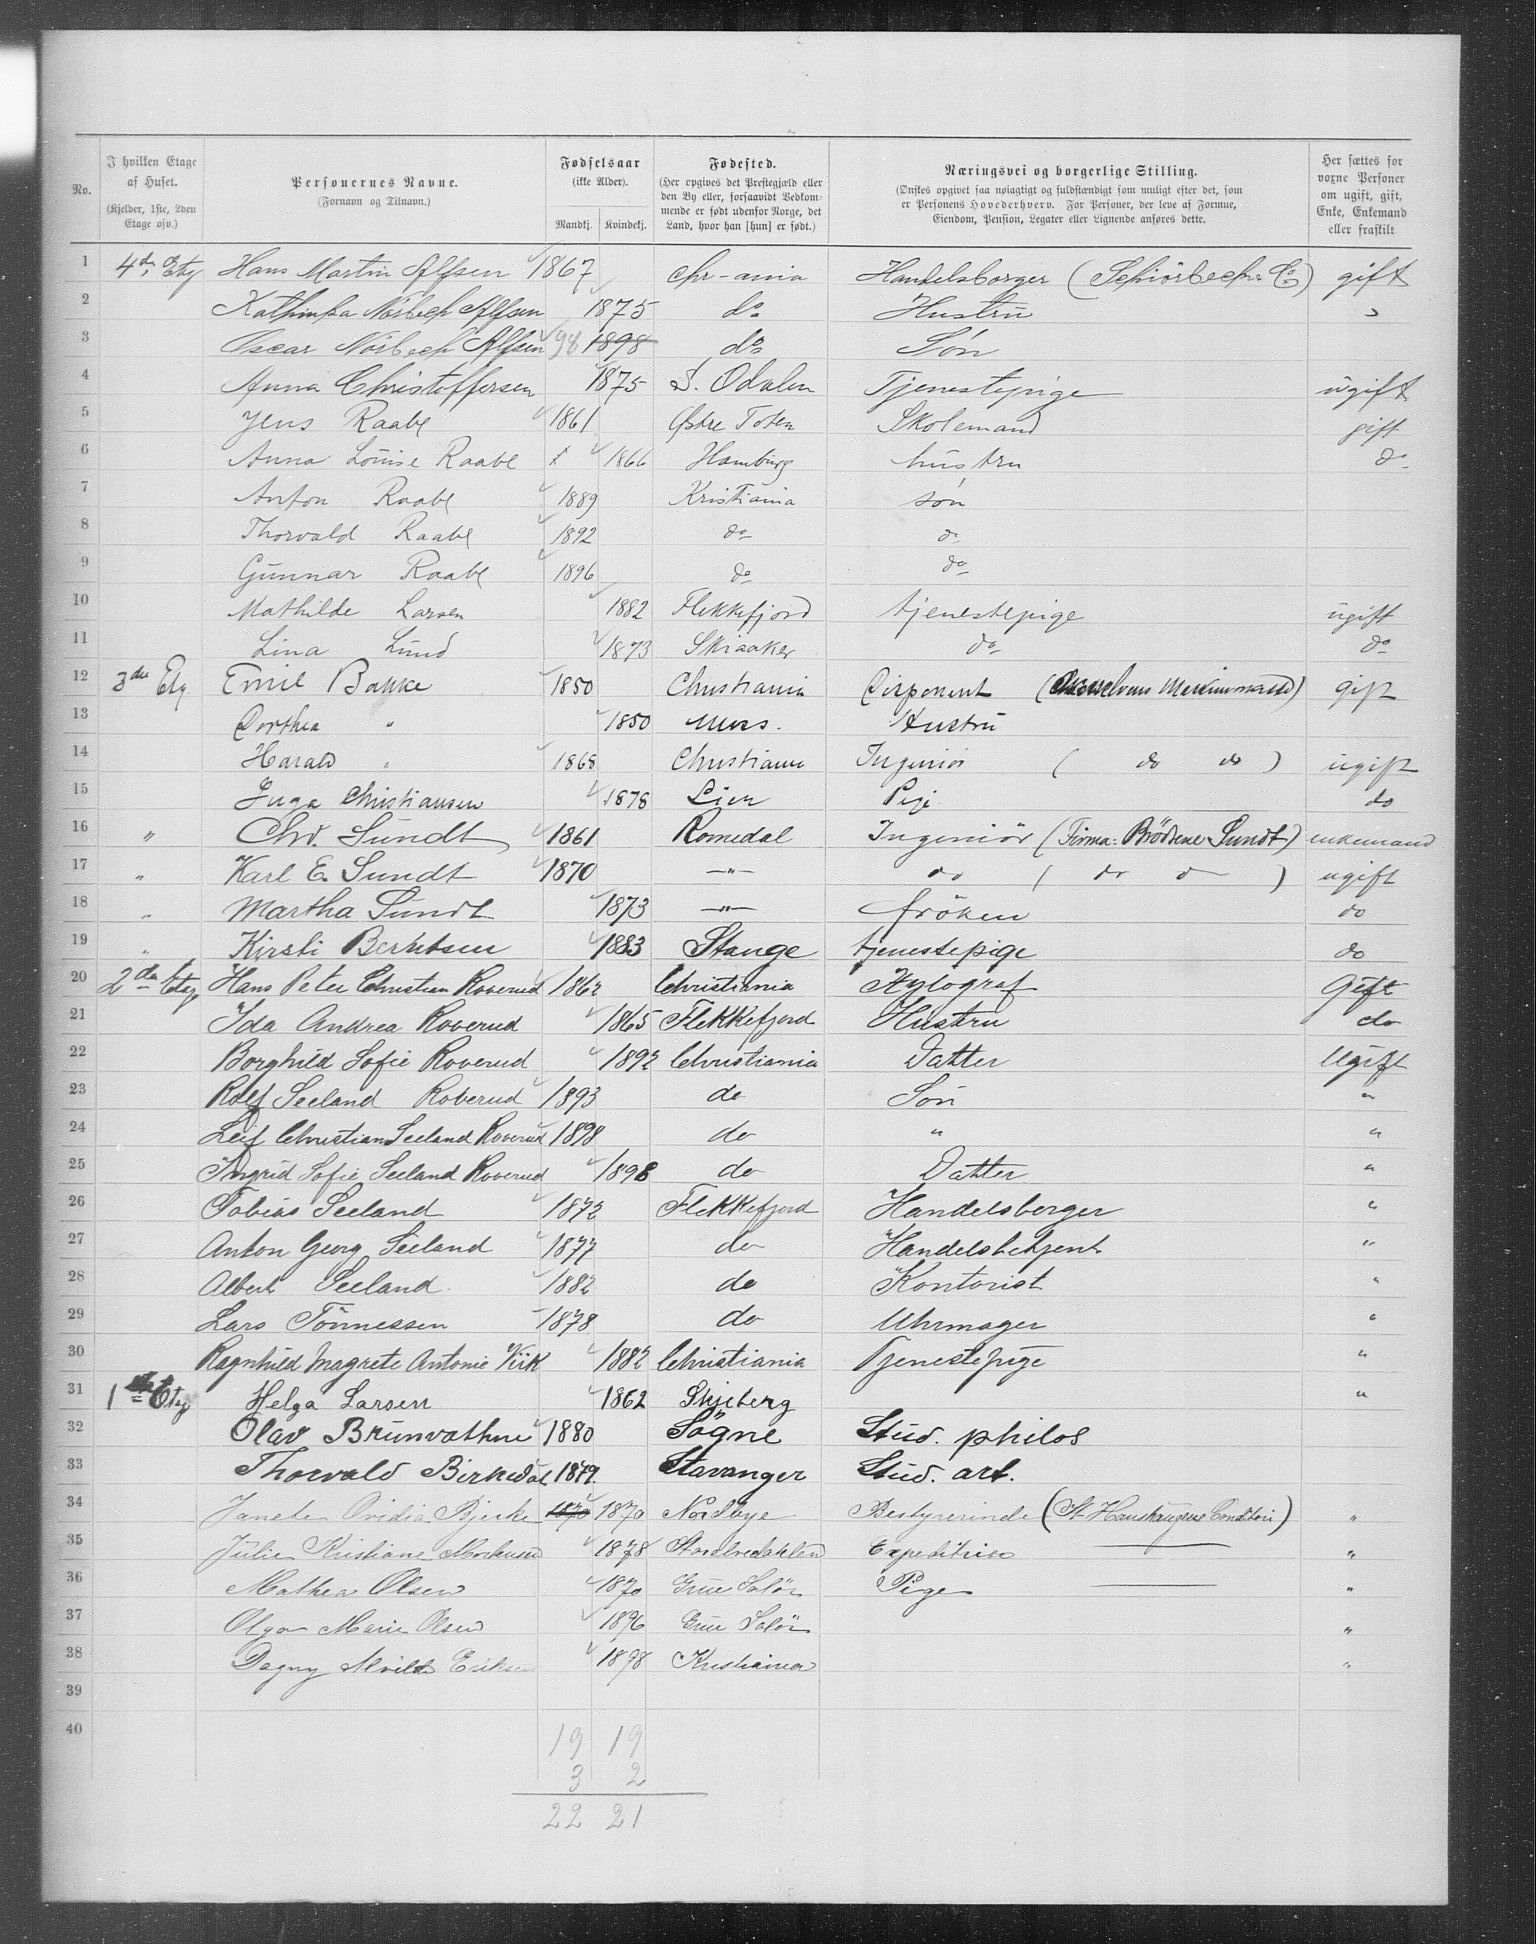 No. | I hvilken Etage af Huset. (Kjelder, 1ste, 2den Etage osv.) | Personernes Navne. (Fornavn og Tilnavn.) | Fødselsaar (ikke Alder). Mandkj. | Kvindekj. | Fødested. (Her opgives det Prestegjæld eller den By eller, forsaavidt Vedkommende er født udenfor Norge, det Land, hvor han [hun] er født.) | Næringsvei og borgerlige Stilling. (Ønskes opgivet saa nøiagtigt og fuldstændigt som muligt efter det, som er Personens Hovederhverv. For Personer, der leve af Formue, Eiendom, Pension, Legater eller Lignende anføres dette. | Her sættes for voxne Personer om ugift, gift, Enke, Enkemand eller fraskilt
1 4de Etg Hans Martin Alfsen 1867 Chr-ania Handelsborger (Schiörbech & Co) gift
2 Kathinka Nörbech Alfsen 1875 do Hustru "
3 Oscar Nörbech Alfsen 98 1898 do Søn
4 Anna Christoffersen 1875 S. Odalen Tjenestepige ugift
5 Jens Raabe 1861 Østre Toten Skolemand gift
6 Anna Louise Raabe 1866 Hamburg hustru do
7 Anton Raabe 1889 Kristiania søn
8 Thorvald Raabe 1892 do do
9 Gunnar Raabe 1896 do do
10 Mathilde Larsen 1882 Flekkefjord tjenestepige ugift
11 Lina Lund 1873 Skiaaker do do
12 3die Etg. Emil Bakke 1850 Christiania Disponent gift
13 Dorthea " 1850 Moss. Hustru
14 Harald " 1868 Christiania Ingeniör ( do do ) ugift
15 Inga Christiansen 1878 Lier Pige do
16 " Chr. Sundt 1861 Romedal Ingeniör (Firma: Brödrene Sundt) enkemand
17 " Karl E. Sundt 1870 —"— do ( do do ) ugift
18 " Martha Sundt 1873 —"— fröken do
19 " Kirsti Berntsen 1883 Stange tjenestepige do
20 2den Etage Hans Peter Christian Roverud 1862 Christiania Xylograf Gift
21 Ida Andrea Roverud 1865 Flekkefjord Hustru do
22 Borghild Sofie Roverud 1892 Christiania Datter Ugift
23 Rolf Seeland Roverud 1893 do Sön "
24 Leif Christian Seeland Roverud 1898 do " "
25 Ingrid Sofie Seeland Roverud 1898 do Datter "
26 Tobias Seeland 1872 Flekkefjord Handelsborger "
27 Anton Georg Seeland 1877 do Handelsbetjent "
28 Albert Seeland 1882 do Kontorist "
29 Lars Tönnessen 1878 do Uhrmager "
30 Ragnhild Magrete Antonie Viik 1882 Christiania Tjenestepige "
31 1ste Etg Helga Larsen 1862 Skjeberg "
32 Olav Brunvathne 1880 Sögne Stud. philos
33 Thorvald Birkedal 1879. Stavanger Stud. art.
34 Janette Ovidia Bjerke 1870 1870 Nordbye Bestyrerinde (St Hanshaugens Conditori) "
35 Julie Kristiane 1878 Expeditrise —— "
36 Mathea Olsen 1870 Grue Solör Pige —— "
37 Olga Marie Olsen 1896 Grue Solör "
38 Dagny Alvilde Eriksen 1898 Kristiania "
39
40
19 19
3 2
22 21